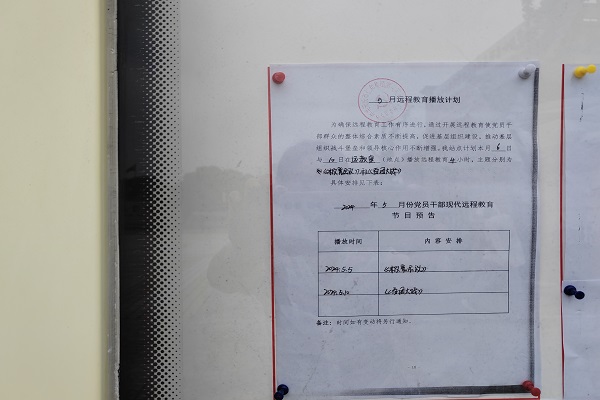 5 月远程教育播放计划
为确保远程教育工作有序进行，通过开展远程教育使党员干
部群众的整体综合素质不断提高，促进基层组织建设，推动基层
组织战斗堡垒和领导核心作用不断增强。我站点计划本月 6 日
与 10 日在远教室（地点）播放远程教育 4 小时，主题分别为
具体安排见下表：
2024 年 5 月份党员干部现代远程教育
节目预告
播放时间 内容安排
2024.5.5
2024.5.10
备注：时间如有变动将另行通知。